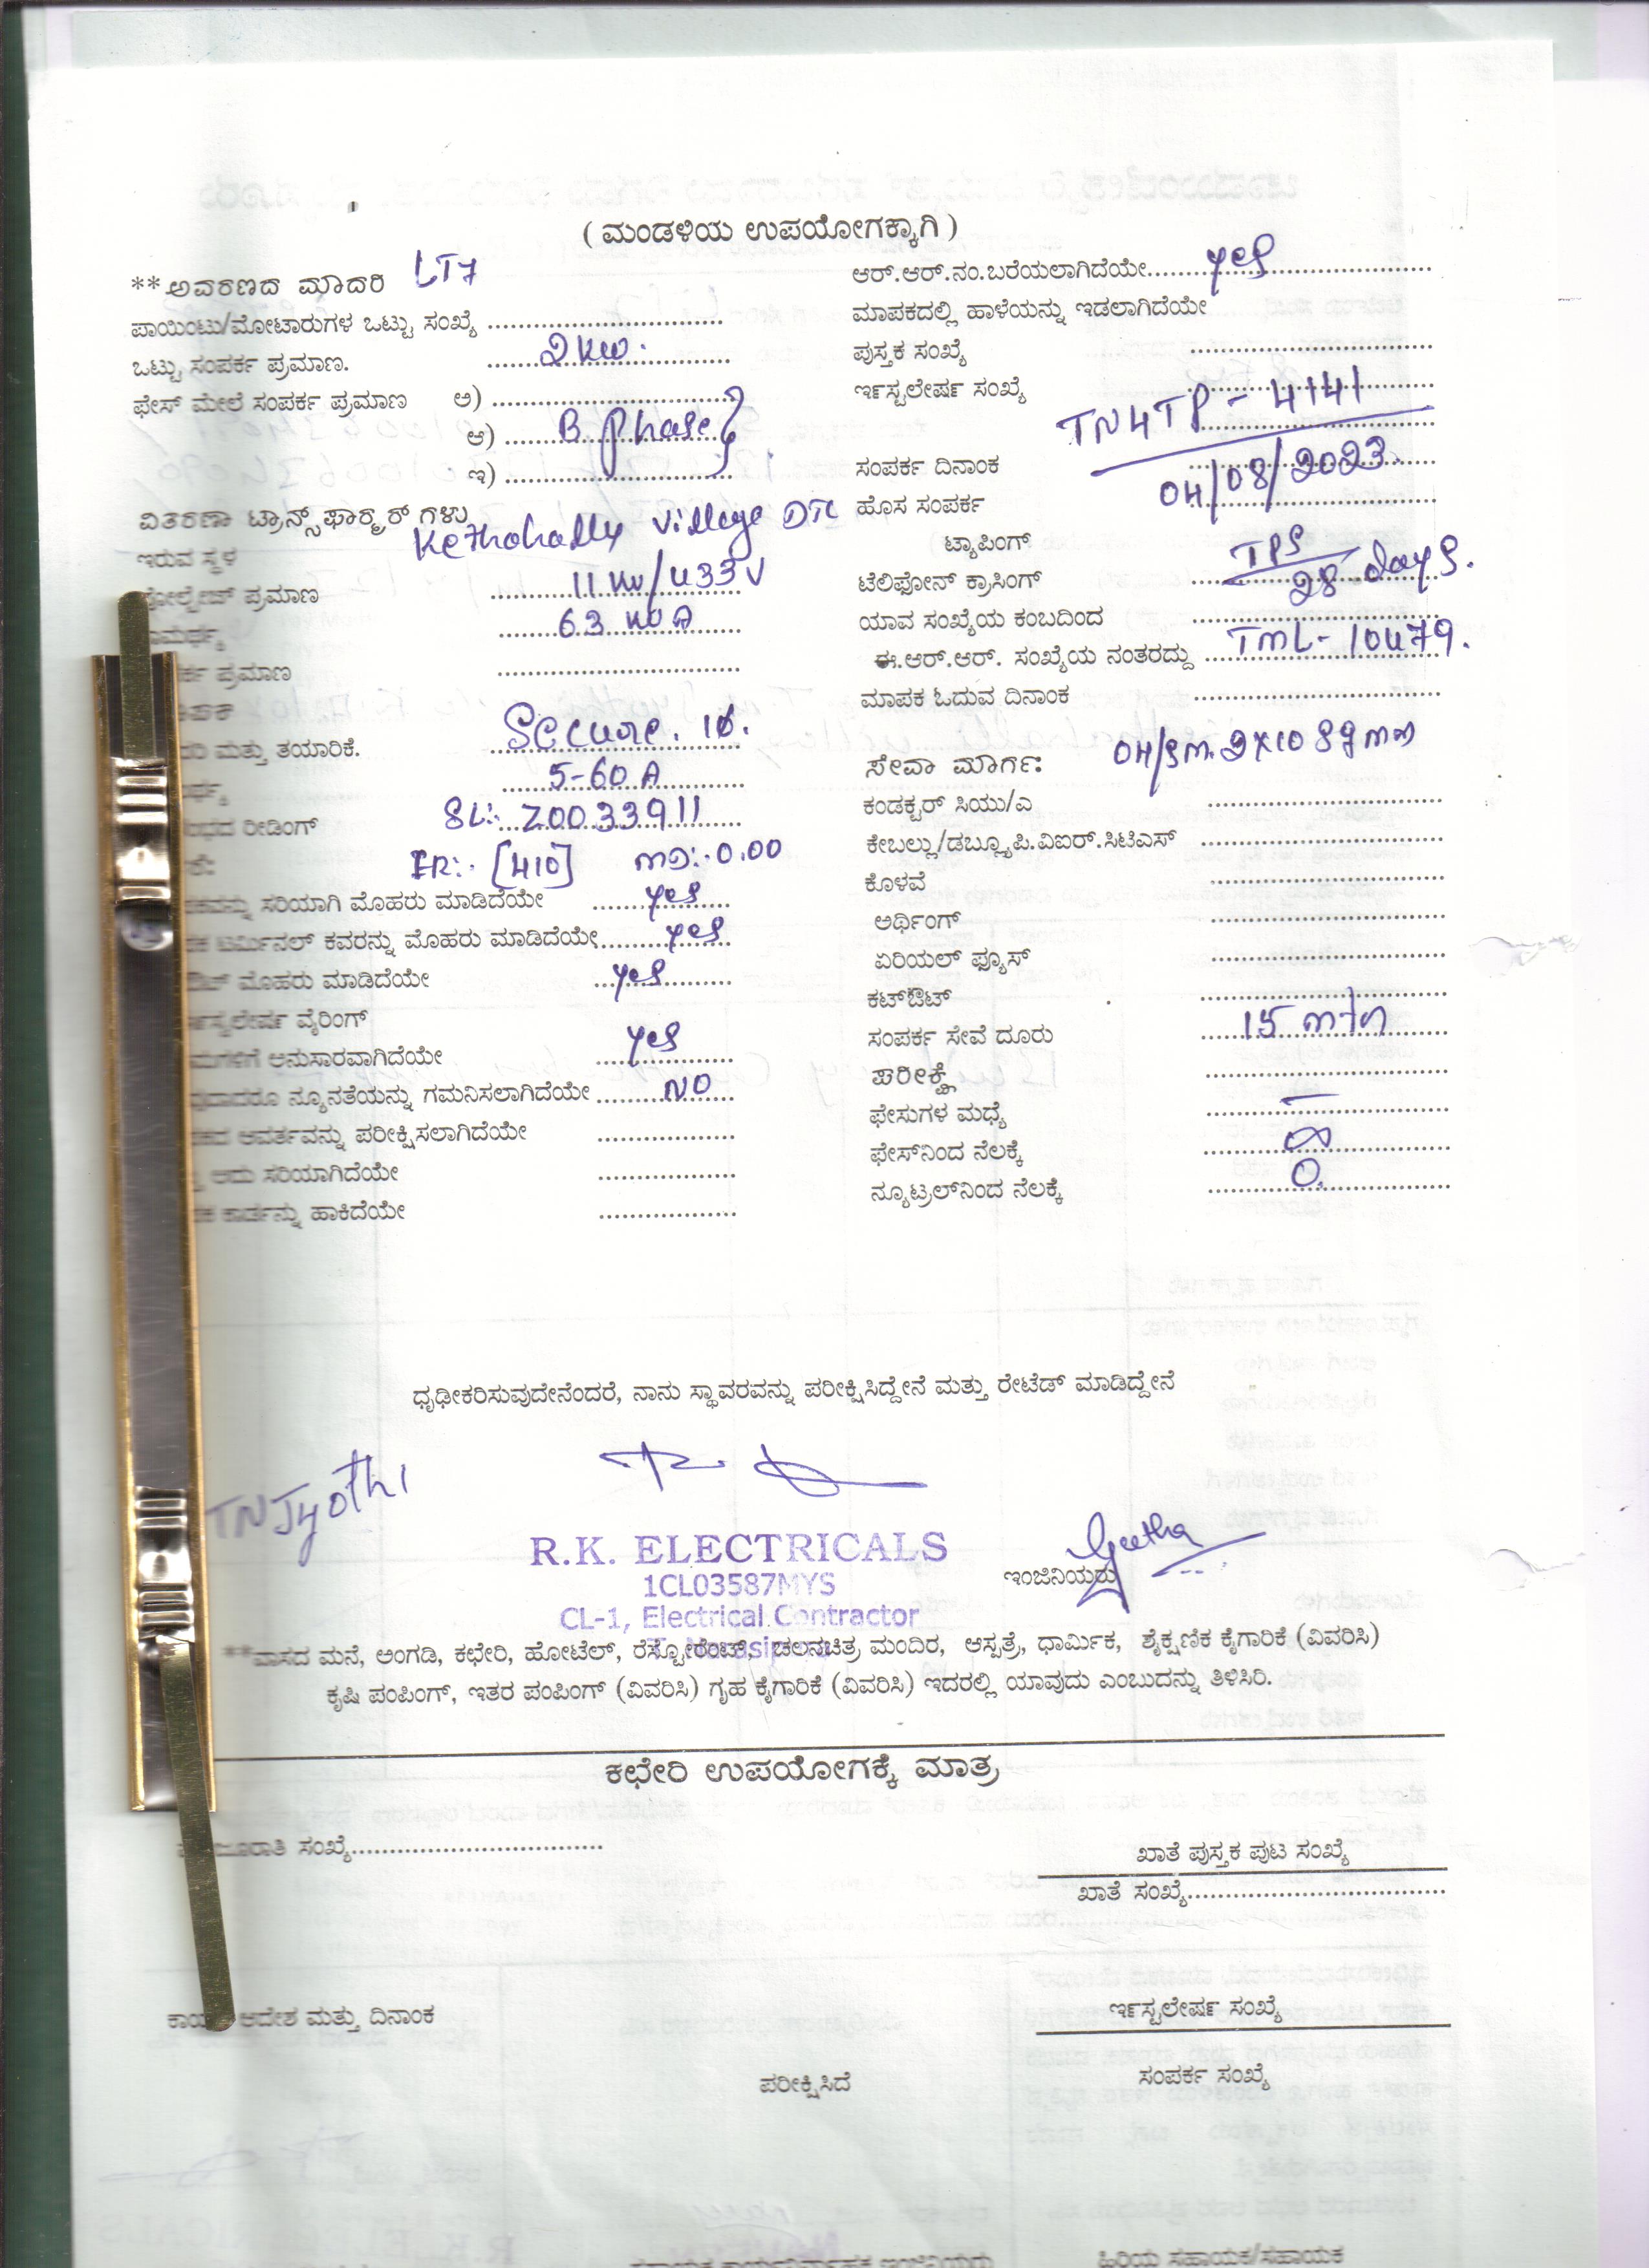 ( ಮಂಡಳಿಯ ಉಪಯೋಗಕ್ಕಾಗಿ )
**ಅವರಣದ ಮಾದರಿ LT7
ಪಾಯಿಂಟು/ಮೋಟಾರುಗಳ ಒಟ್ಟು ಸಂಖ್ಯೆ ..............................
ಒಟ್ಟು ಸಂಪರ್ಕ ಪ್ರಮಾಣ. 2KW.
ಫೇಸ್ ಮೇಲೆ ಸಂಪರ್ಕ ಪ್ರಮಾಣ ಅ) ..............................
ಆ) B Phase
ಇ) ..............................
ವಿತರಣಾ ಟ್ರಾನ್ಸ್‌ಫಾರ್ಮರ್ ಗಳು
ಇರುವ ಸ್ಥಳ Kethohally Village DTC
ಪ್ರಮಾಣ 11 KV/433V
63 KVA
ಪ್ರಮಾಣ ..............................
ಮತ್ತು ತಯಾರಿಕೆ. Secure. 1Ø.
5-60 A
ರೀಡಿಂಗ್ SL:- Z0033911
IR:- [410] MD:-0.00
ಸರಿಯಾಗಿ ಮೊಹರು ಮಾಡಿದೆಯೇ yes
ಟರ್ಮಿನಲ್ ಕವರನ್ನು ಮೊಹರು ಮಾಡಿದೆಯೇ yes
ಮೊಹರು ಮಾಡಿದೆಯೇ yes
ವೈರಿಂಗ್
ಅನುಸಾರವಾಗಿದೆಯೇ yes
ನ್ಯೂನತೆಯನ್ನು ಗಮನಿಸಲಾಗಿದೆಯೇ NO
ಆವರ್ತವನ್ನು ಪರೀಕ್ಷಿಸಲಾಗಿದೆಯೇ ..................
ಅದು ಸರಿಯಾಗಿದೆಯೇ ..................
ಕಾರ್ಡನ್ನು ಹಾಕಿದೆಯೇ ..................
ಆರ್.ಆರ್.ನಂ.ಬರೆಯಲಾಗಿದೆಯೇ yes
ಮಾಪಕದಲ್ಲಿ ಹಾಳೆಯನ್ನು ಇಡಲಾಗಿದೆಯೇ
ಪುಸ್ತಕ ಸಂಖ್ಯೆ ..............................
ಇರ್ನ್ಸ್ಟಲೇಷರ್ನ ಸಂಖ್ಯೆ TN4TP - 4141
ಸಂಪರ್ಕ ದಿನಾಂಕ 04/08/2023
ಹೊಸ ಸಂಪರ್ಕ ..............................
ಟ್ಯಾಪಿಂಗ್
ಟೆಲಿಫೋನ್ ಕ್ರಾಸಿಂಗ್ TPS/28 days.
ಯಾವ ಸಂಖ್ಯೆಯ ಕಂಬದಿಂದ ..............................
ಈ.ಆರ್.ಆರ್. ಸಂಖ್ಯೆಯ ನಂತರದ್ದು TML- 10479.
ಮಾಪಕ ಓದುವ ದಿನಾಂಕ ..............................
ಸೇವಾ ಮಾರ್ಗ: OH/Sm. 2x10 Sqmm
ಕಂಡಕ್ಟರ್ ಸಿಯು/ಎ ..............................
ಕೇಬಲ್ಲು/ಡಬ್ಲ್ಯೂಪಿ.ವಿಐರ್.ಸಿಟಿಎಸ್ ..............................
ಕೊಳವೆ ..............................
ಅರ್ಥಿಂಗ್ ..............................
ಏರಿಯಲ್ ಫ್ಯೂಸ್ ..............................
ಕಟ್‌ಔಟ್ ..............................
ಸಂಪರ್ಕ ಸೇವೆ ದೂರು 15 mtr
ಪರೀಕ್ಷೆ ..............................
ಫೇಸುಗಳ ಮಧ್ಯೆ —
ಫೇಸ್‌ನಿಂದ ನೆಲಕ್ಕೆ ∞
ನ್ಯೂಟ್ರಲ್‌ನಿಂದ ನೆಲಕ್ಕೆ 0.
ಧೃಢೀಕರಿಸುವುದೇನೆಂದರೆ, ನಾನು ಸ್ಥಾವರವನ್ನು ಪರೀಕ್ಷಿಸಿದ್ದೇನೆ ಮತ್ತು ರೇಟೆಡ್ ಮಾಡಿದ್ದೇನೆ
TNJyothi
R.K. ELECTRICALS
1CL03587MYS
CL-1, Electrical Contractor
Geetha
ಇಂಜಿನಿಯರು
**ವಾಸದ ಮನೆ, ಅಂಗಡಿ, ಕಛೇರಿ, ಹೋಟೆಲ್, ರೆಸ್ಟೋರೆಂಟ್, ಚಲನಚಿತ್ರ ಮಂದಿರ, ಆಸ್ಪತ್ರೆ, ಧಾರ್ಮಿಕ, ಶೈಕ್ಷಣಿಕ ಕೈಗಾರಿಕೆ (ವಿವರಿಸಿ)
ಕೃಷಿ ಪಂಪಿಂಗ್, ಇತರ ಪಂಪಿಂಗ್ (ವಿವರಿಸಿ) ಗೃಹ ಕೈಗಾರಿಕೆ (ವಿವರಿಸಿ) ಇದರಲ್ಲಿ ಯಾವುದು ಎಂಬುದನ್ನು ತಿಳಿಸಿರಿ.
ಕಛೇರಿ ಉಪಯೋಗಕ್ಕೆ ಮಾತ್ರ
ಸಂಖ್ಯೆ.................................
ಖಾತೆ ಪುಸ್ತಕ ಪುಟ ಸಂಖ್ಯೆ
ಖಾತೆ ಸಂಖ್ಯೆ.................................
ಆದೇಶ ಮತ್ತು ದಿನಾಂಕ
ಇರ್ನ್ಸ್ಟಲೇಷರ್ನ ಸಂಖ್ಯೆ
ಪರೀಕ್ಷಿಸಿದೆ
ಸಂಪರ್ಕ ಸಂಖ್ಯೆ
ಹಿರಿಯ ಸಹಾಯಕ/ಸಹಾಯಕ